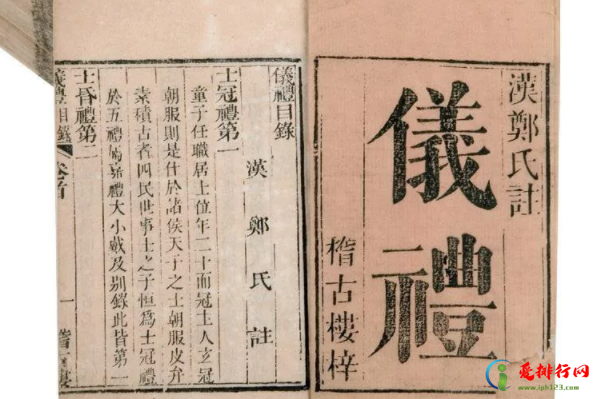 漢鄭氏註
儀禮
稽古樓梓
儀禮目錄
漢鄭氏註
士冠禮第一
童子任職居士位年二十而冠主人玄冠
朝服則是仕於諸侯天子之士朝服皮弁
素積古者四民世事士之子恒為士冠禮
於五禮屬嘉禮大小戴及別錄此皆第一
士昏禮第二
儀禮目錄
卷首
一
爱排行网
www.iph123.com